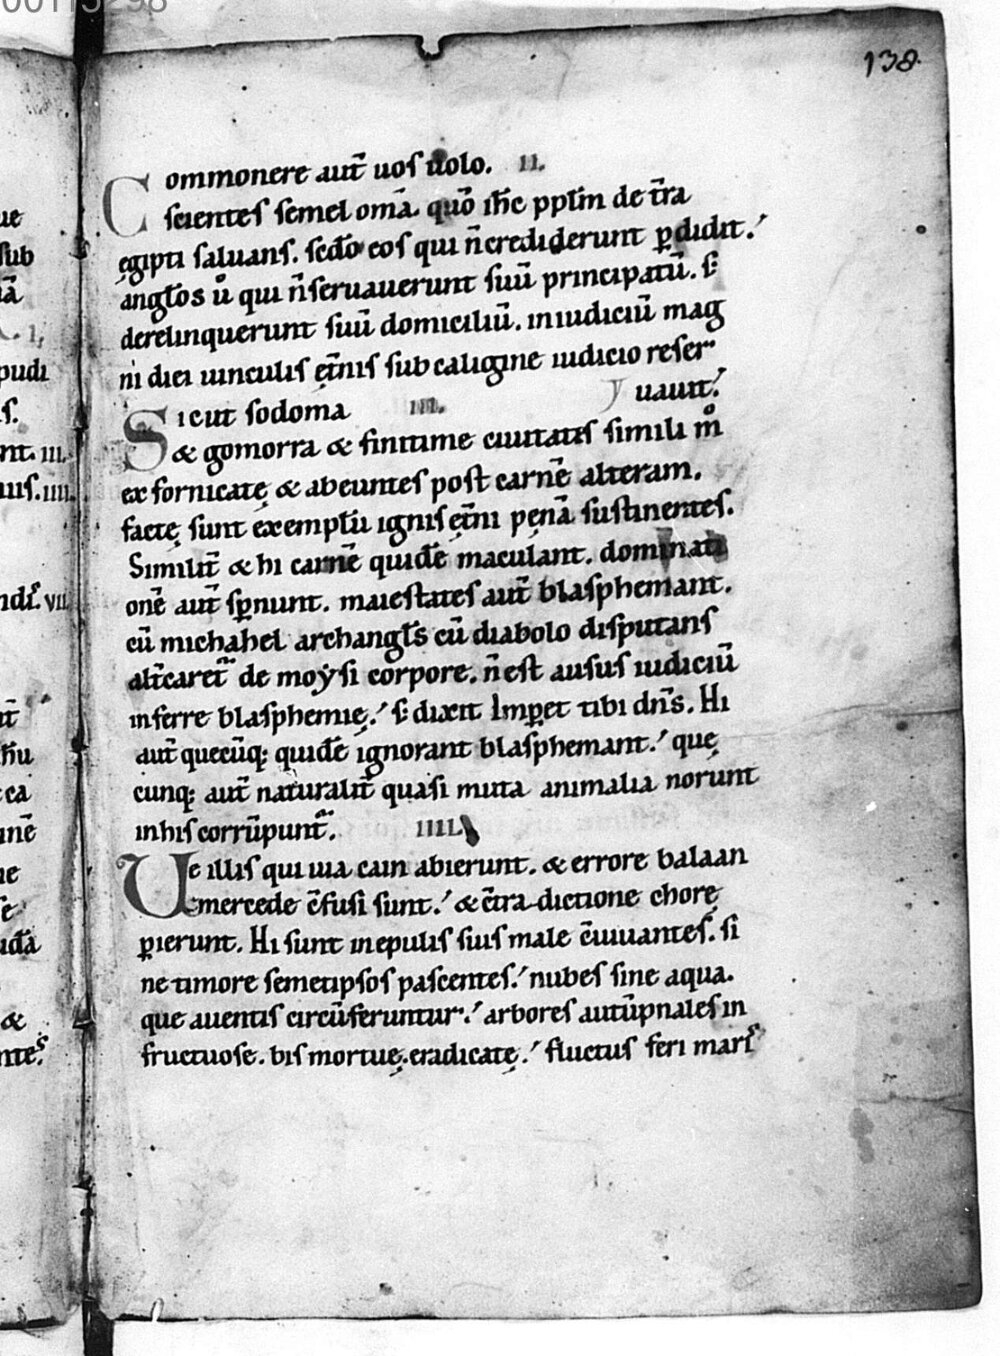 138
Commonere aut̄ uos uolo. II.
scientes semel om̄a. quō ih̄c pplm̄ de t̄ra
ęgipti saluans. sedō eos qui n̄ crediderunt ꝑdidit.
angl̄os ů qui n̄ seruauerunt suū principatū. s;
derelinquerunt suū domiciliū. iniudiciū mag
ni diei uinculis ęt̄nis sub caligine iudicio reser
uauit.
Sicut sodoma III.
& gomorra & finitime ciuitates simili m̊
ex fornicatę & abeuntes post carnē alteram.
factę sunt exemplū ignis ęt̄ni pęnā sustinentes.
Similit̄ & hi carnē quidē maculant. dominati
onē aut̄ sꝑnunt. maiestates aut̄ blasphemant.
cū michahel archangl̄s cū diabolo disputans
alt̄caret̄ de moẏsi corpore. n̄ est ausus iudiciū
inferre blasphemię. s; dixit Imꝑet tibi dn̄s. Hi
aut̄ quecūq; quidē ignorant blasphemant. quę
cunq; aut̄ naturalit̄ quasi muta animalia norunt
inhis corrūpunt̄. IIII.
Ue illis qui uia cain abierunt. & errore balaan
mercede c̄fusi sunt. & c̄tradictione chorę
ꝑierunt. Hi sunt inepulis suis male c̄uiuantes. si
ne timore semetipsos pascentes. nubes sine aqua.
que auentis circūferuntur. arbores autūpnales in
fructuose. bis mortuę. eradicatę. fluctus feri mars̄